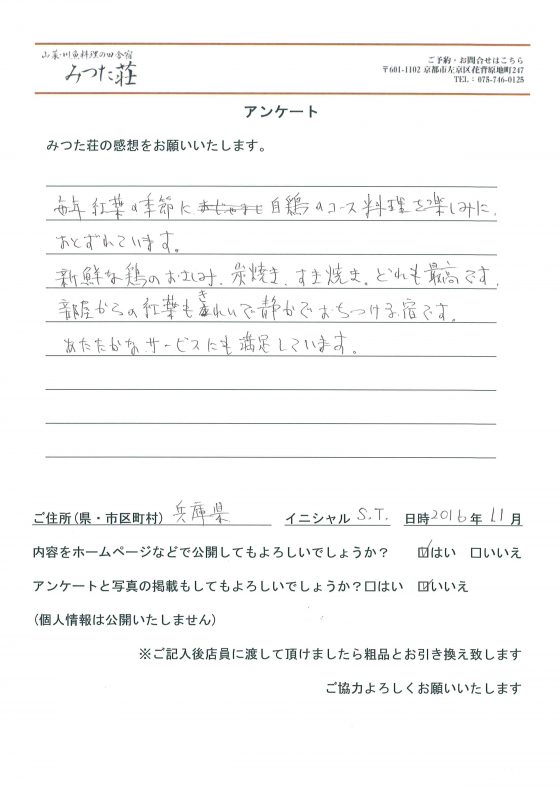 山菜・川魚料理の田舎宿
みつた荘
ご予約・お問合せはこちら
〒601-1102 京都市左京区花脊原地町247
TEL：075-746-0125
アンケート
みつた荘の感想をお願いいたします。
毎年 紅葉の季節に 地鶏のコース料理を楽しみに、
おとずれています。
新鮮な鶏のおさしみ、炭焼き、すき焼き。どれも最高です。
部屋からの紅葉もきれいで静かでおちつける宿です。
あたたかなサービスにも満足しています。
ご住所(県・市区町村) 兵庫県 イニシャル S.T. 日時2016年 11月
内容をホームページなどで公開してもよろしいでしょうか？ ☑はい □いいえ
アンケートと写真の掲載もしてもよろしいでしょうか？□はい ☑いいえ
(個人情報は公開いたしません)
※ご記入後店員に渡して頂けましたら粗品とお引き換え致します
ご協力よろしくお願いいたします